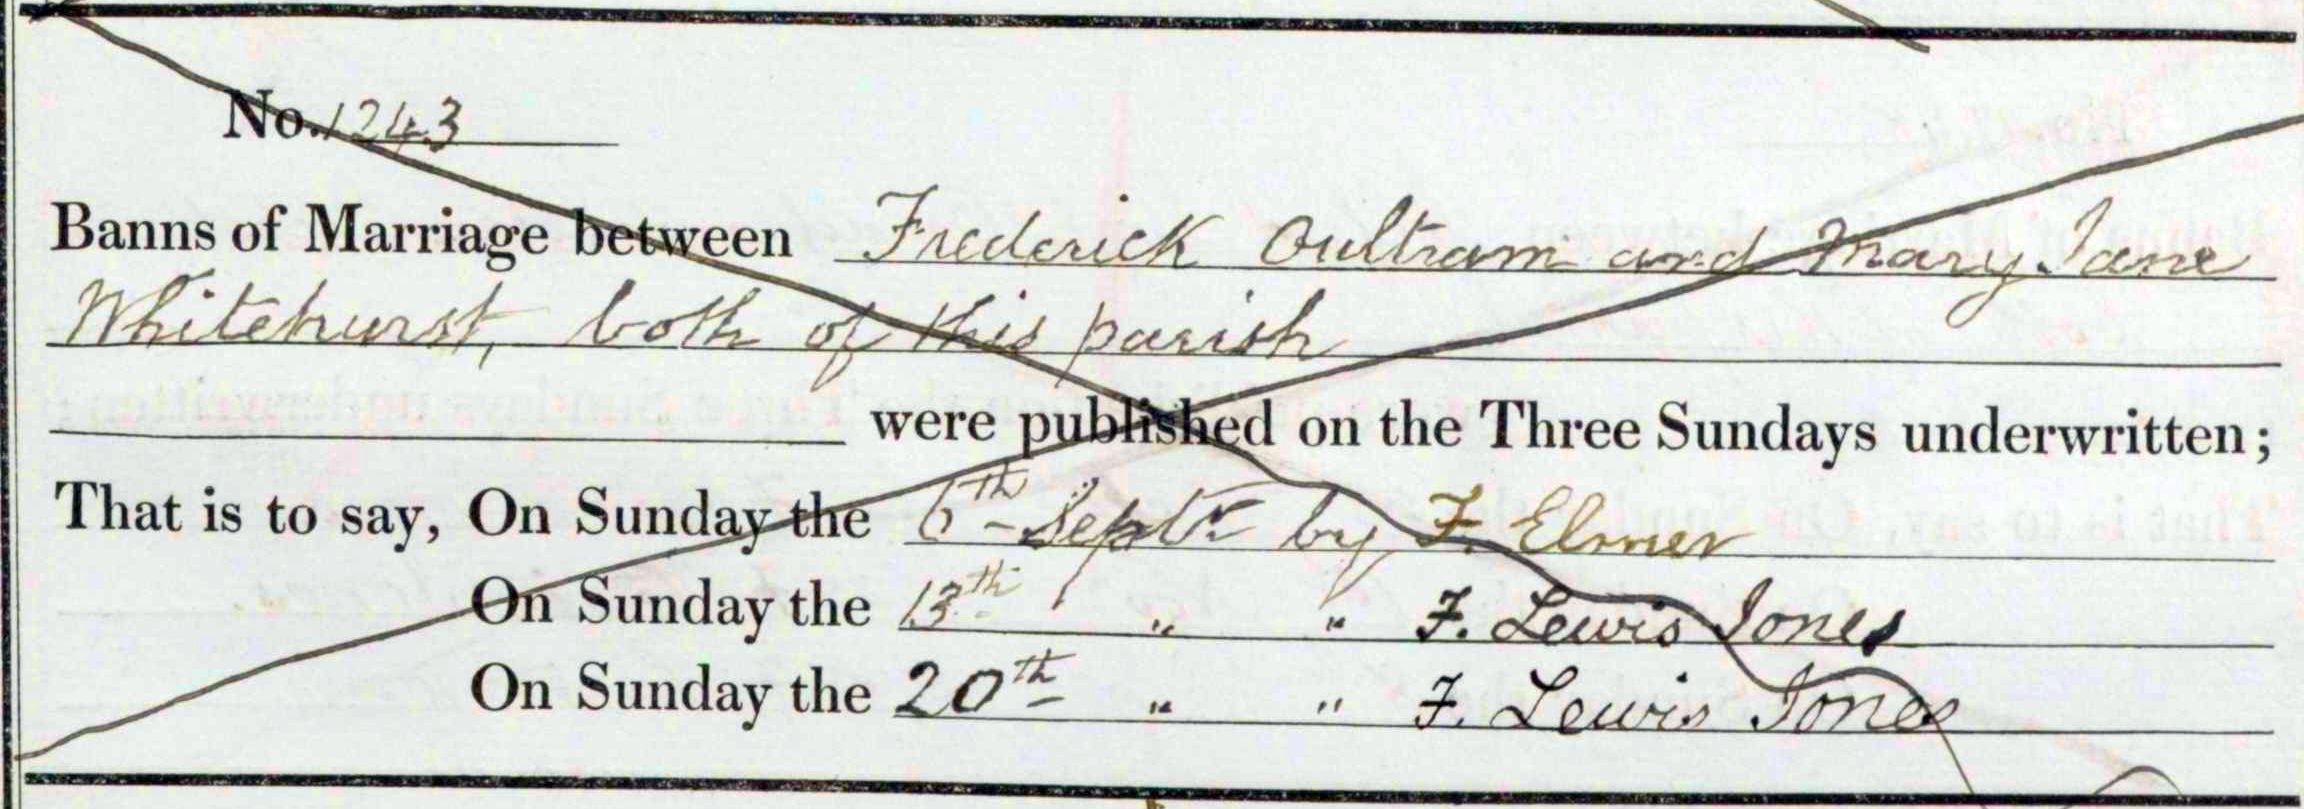 No. 1243
Banns of Marriage between Frederick Oultram and Mary Jane
Whitehurst, both of this parish
were published on the Three Sundays underwritten;
That is to say, On Sunday the 6th Septr by F. Elmer
On Sunday the 13th " " F. Lewis Jones
On Sunday the 20th " " F. Lewis Jones